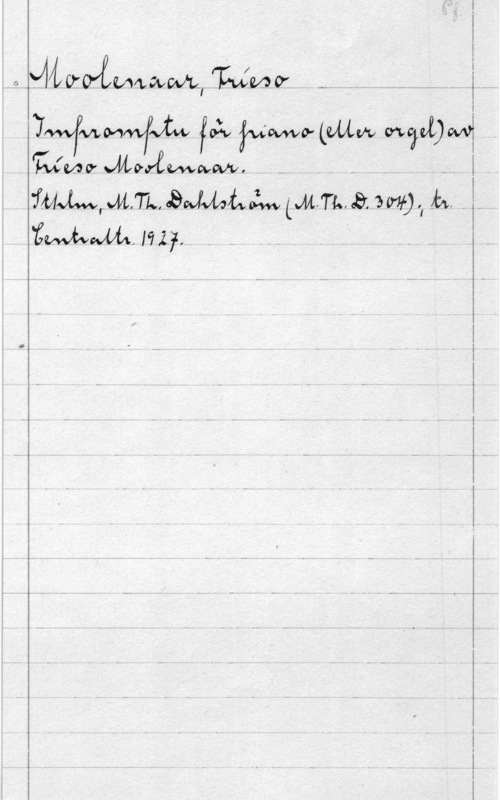 Pf
Moolenaar, Frieso
Impromptu för piano (eller orgel) av
Frieso Moolenaar.
Sthlm, M.Th. Dahlström (M.Th.D. 304); tr.
Centraltr. 1927.